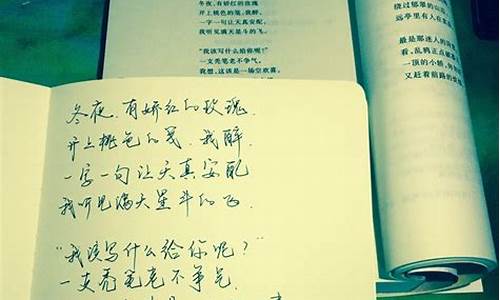 冬夜,有娇红的玫瑰
开上桃色的笺,我醉,
一字一句让天真安配,
我听见满天星斗的飞。
“我该写什么给你呢?”
一支秃笔老不争气。
我想,这该是一场空欢喜。
绕过郁翠的山
远亭里有人在
最是那迷人的
看,乱鸦正点
一顶的小轿,
又赶着前路的
冬夜,有娇红的玫瑰,
开上桃色的笺,我醉,
一字一句让天真安配
我听见满天星斗的飞.
“我该写什么给你呢?”
一支秃笔老不争气.